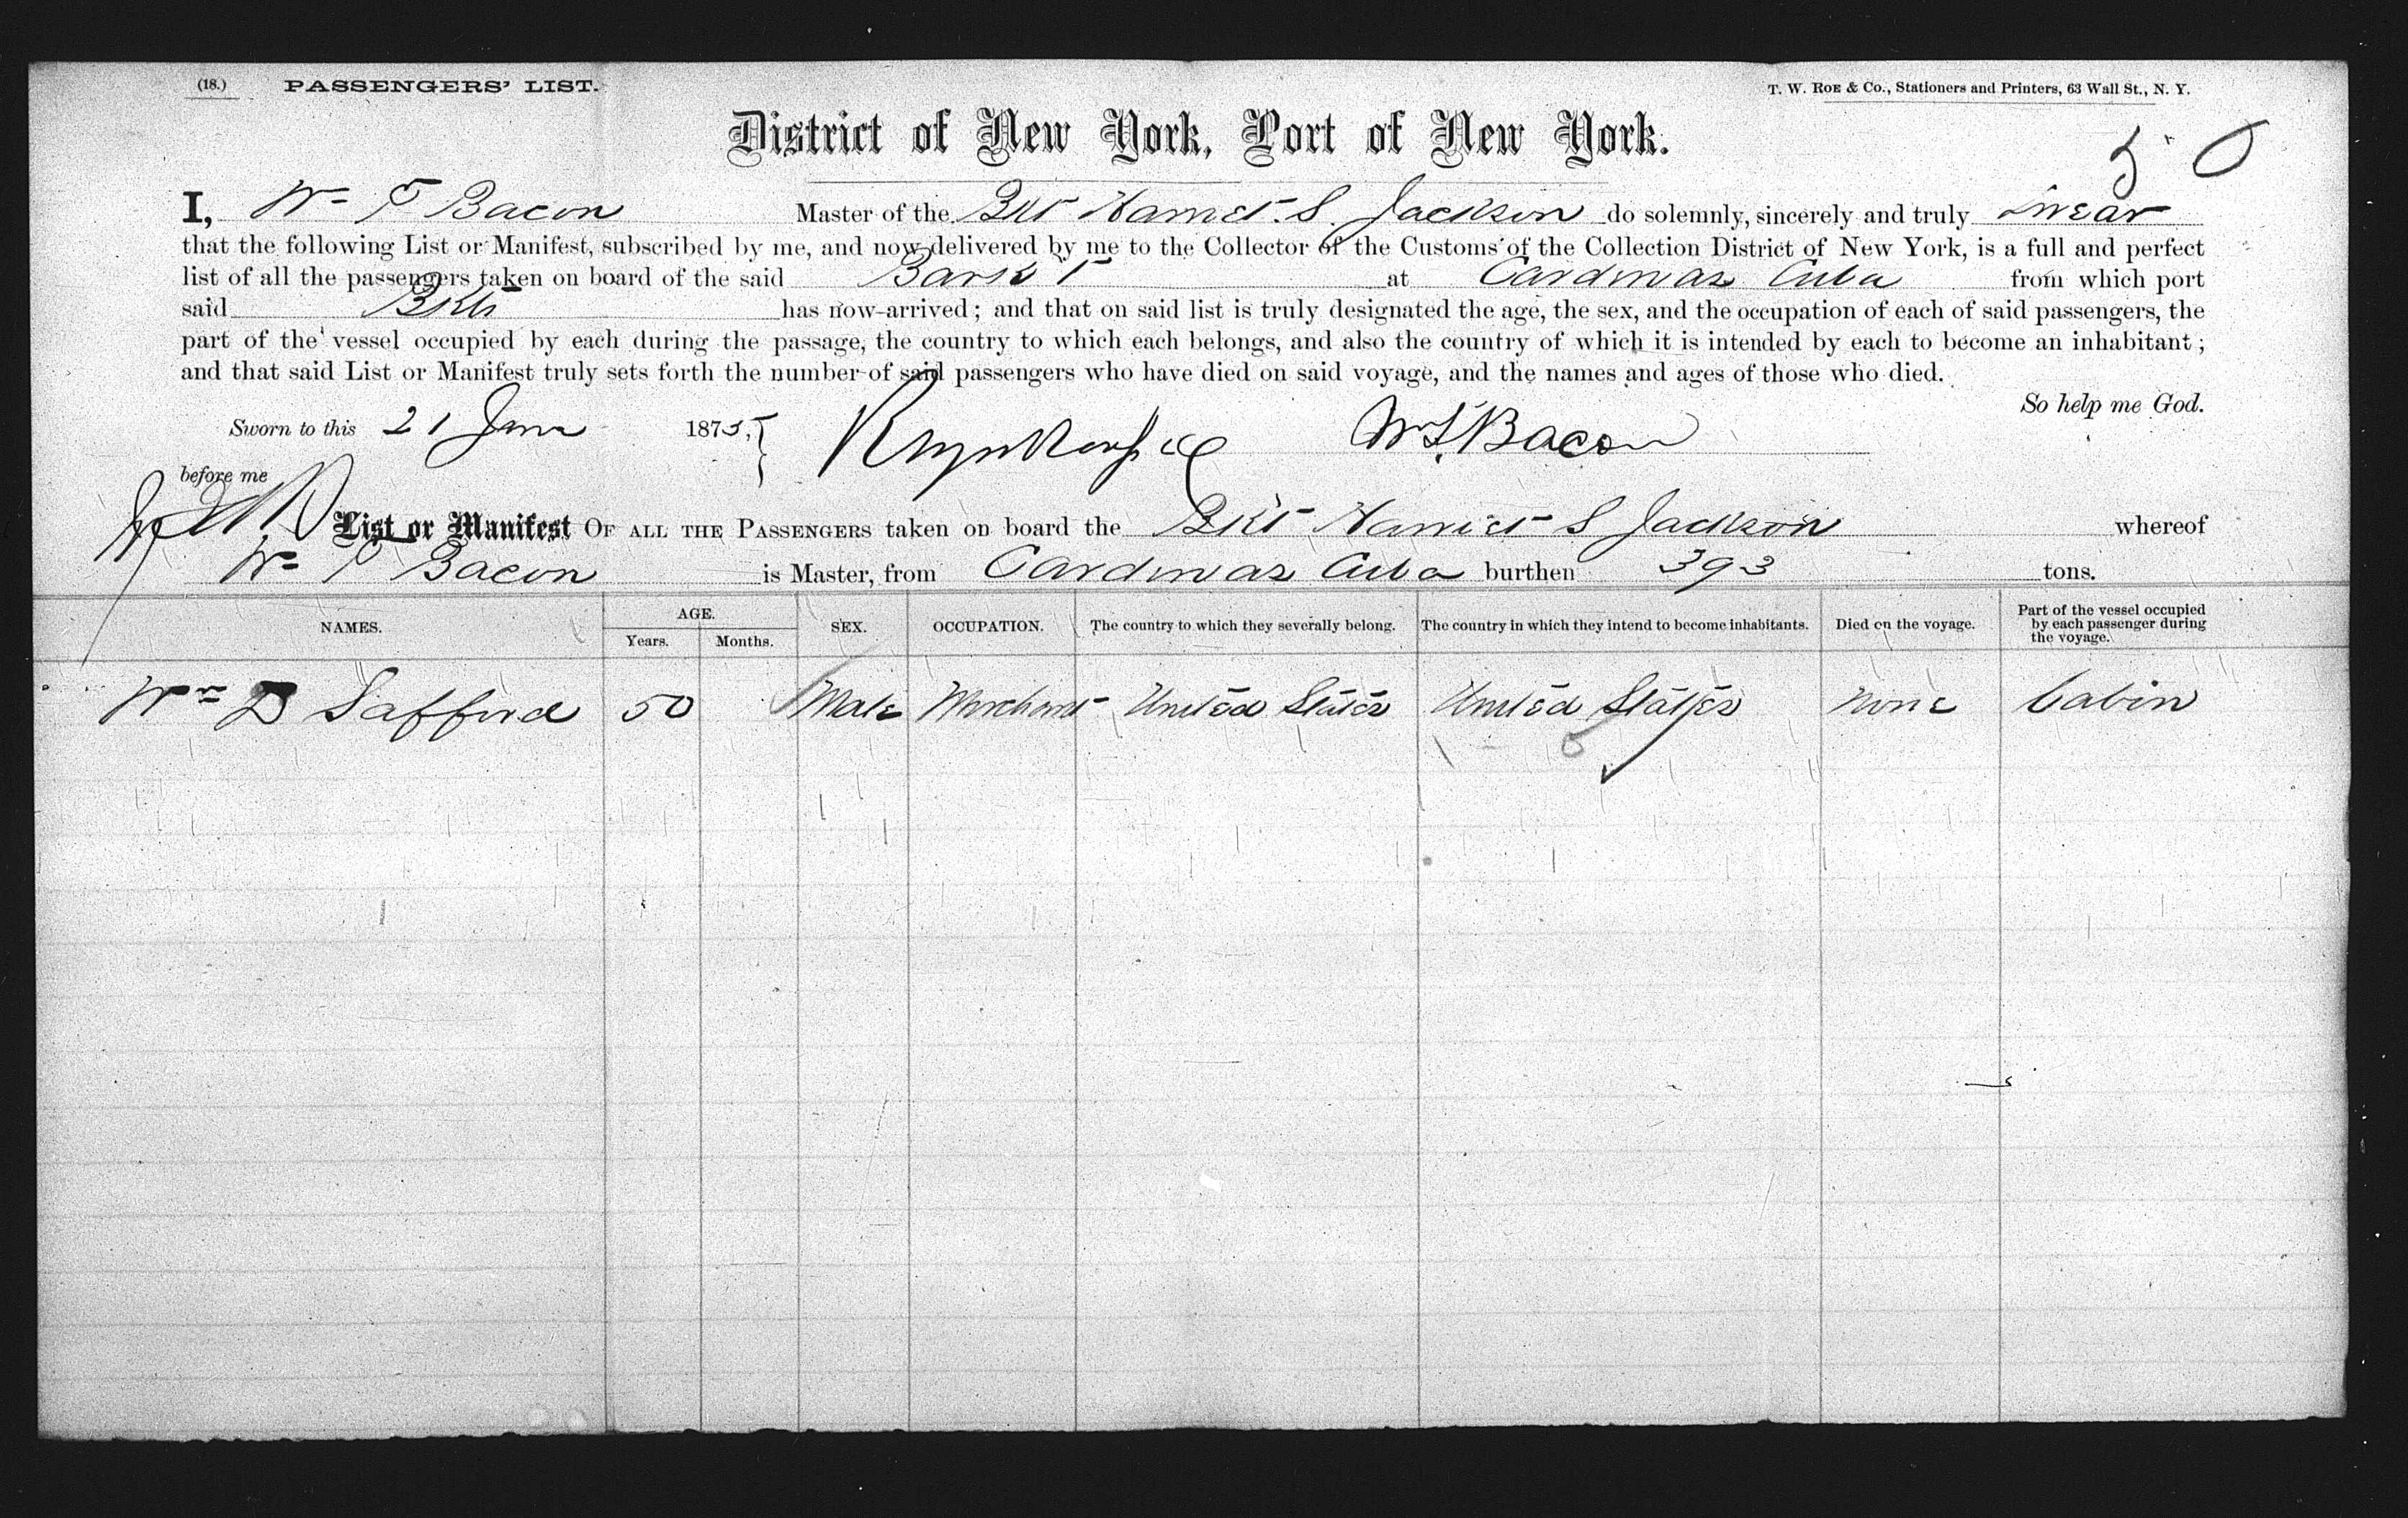 (18.) PASSENGERS' LIST. T. W. Roe & Co., Stationers and Printers, 63 Wall St., N. Y.
District of New York, Port of New York.
I, Wm F Bacon Master of the Bkt Harriet S. Jackson do solemnly, sincerely and truly swear
that the following List or Manifest, subscribed by me, and now delivered by me to the Collector of the Customs of the Collection District of New York, is a full and perfect
list of all the passengers taken on board of the said Barkt at Cardenas Cuba from which port
said Bkt has now arrived; and that on said list is truly designated the age, the sex, and the occupation of each of said passengers, the
part of the vessel occupied by each during the passage, the country to which each belongs, and also the country of which it is intended by each to become an inhabitant;
and that said List or Manifest truly sets forth the number of said passengers who have died on said voyage, and the names and ages of those who died.
So help me God.
Sworn to this 21 June 1875, Wm F Bacon
before me
List or Manifest OF ALL THE PASSENGERS taken on board the Bkt Harriet S Jackson whereof
Wm F Bacon is Master, from Cardenas Cuba burthen 393 tons.
NAMES. AGE. Years. Months. SEX. OCCUPATION. The country to which they severally belong. The country in which they intend to become inhabitants. Died on the voyage. Part of the vessel occupied by each passenger during the voyage.
Wm D Safford 50 Male Merchant United States United States None Cabin